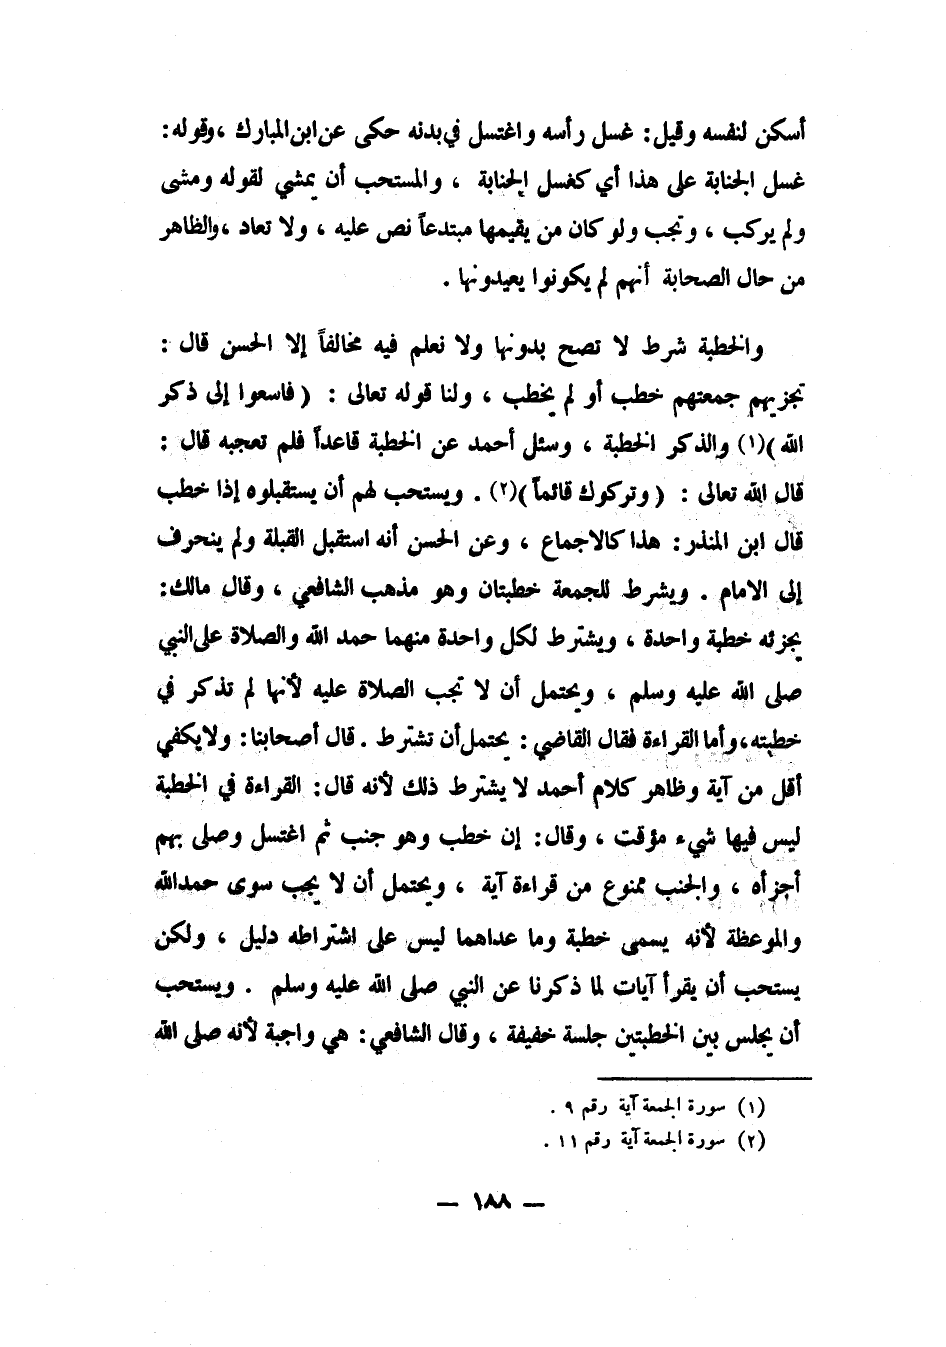 أسكن لنفسه وقيل: غسل رأسه واغتسل في بدنه حكى عن ابن المبارك ، وقوله:
غسل الجنابة على هذا أي كغسل الجنابة ، والمستحب أن يمشي لقوله ومشى
ولم يركب ، وتجب ولو كان من يقيمها مبتدعاً نص عليه ، ولا تعاد ، والظاهر
من حال الصحابة أنهم لم يكونوا يعيدونها .
والخطبة شرط لا تصح بدونها ولا نعلم فيه مخالفاً إلا الحسن قال :
تجزيهم جمعتهم خطب أو لم يخطب ، ولنا قوله تعالى : ( فاسعوا إلى ذكر
الله )(١) والذكر الخطبة ، وسئل أحمد عن الخطبة قاعداً فلم تعجبه قال :
قال الله تعالى : ( وتركوك قائماً )(٢) . ويستحب لهم أن يستقبلوه إذا خطب
قال ابن المنذر: هذا كالاجماع ، وعن الحسن أنه استقبل القبلة ولم ينحرف
إلى الامام . ويشرط للجمعة خطبتان وهو مذهب الشافعي ، وقال مالك:
يجزئه خطبة واحدة ، ويشترط لكل واحدة منهما حمد الله والصلاة على النبي
صلى الله عليه وسلم ، ويحتمل أن لا تجب الصلاة عليه لأنها لم تذكر في
خطبته، وأما القراءة فقال القاضي : يحتمل أن تشترط . قال أصحابنا: ولا يكفي
أقل من آية وظاهر كلام أحمد لا يشترط ذلك لأنه قال: القراءة في الخطبة
ليس فيها شيء مؤقت ، وقال: إن خطب وهو جنب ثم اغتسل وصلى بهم
أجزأه ، والجنب ممنوع من قراءة آية ، ويحتمل أن لا يجب سوى حمد الله
والموعظة لأنه يسمى خطبة وما عداهما ليس على اشتراطه دليل ، ولكن
يستحب أن يقرأ آيات لما ذكرنا عن النبي صلى الله عليه وسلم . ويستحب
أن يجلس بين الخطبتين جلسة خفيفة ، وقال الشافعي: هي واجبة لأنه صلى الله
(١) سورة الجمعة آية رقم ٩ .
(٢) سورة الجمعة آية رقم ١١ .
— ١٨٨ —